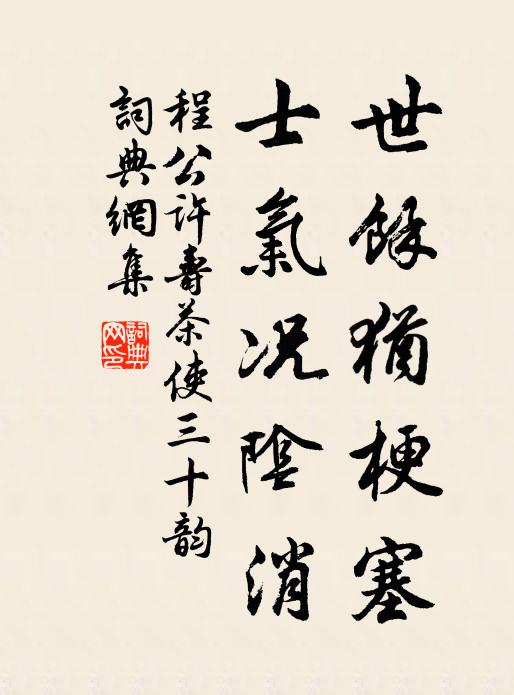 世餘猶梗塞
士氣况陰消
程公許壽茶使三十韵
詞典網集
詞典網印